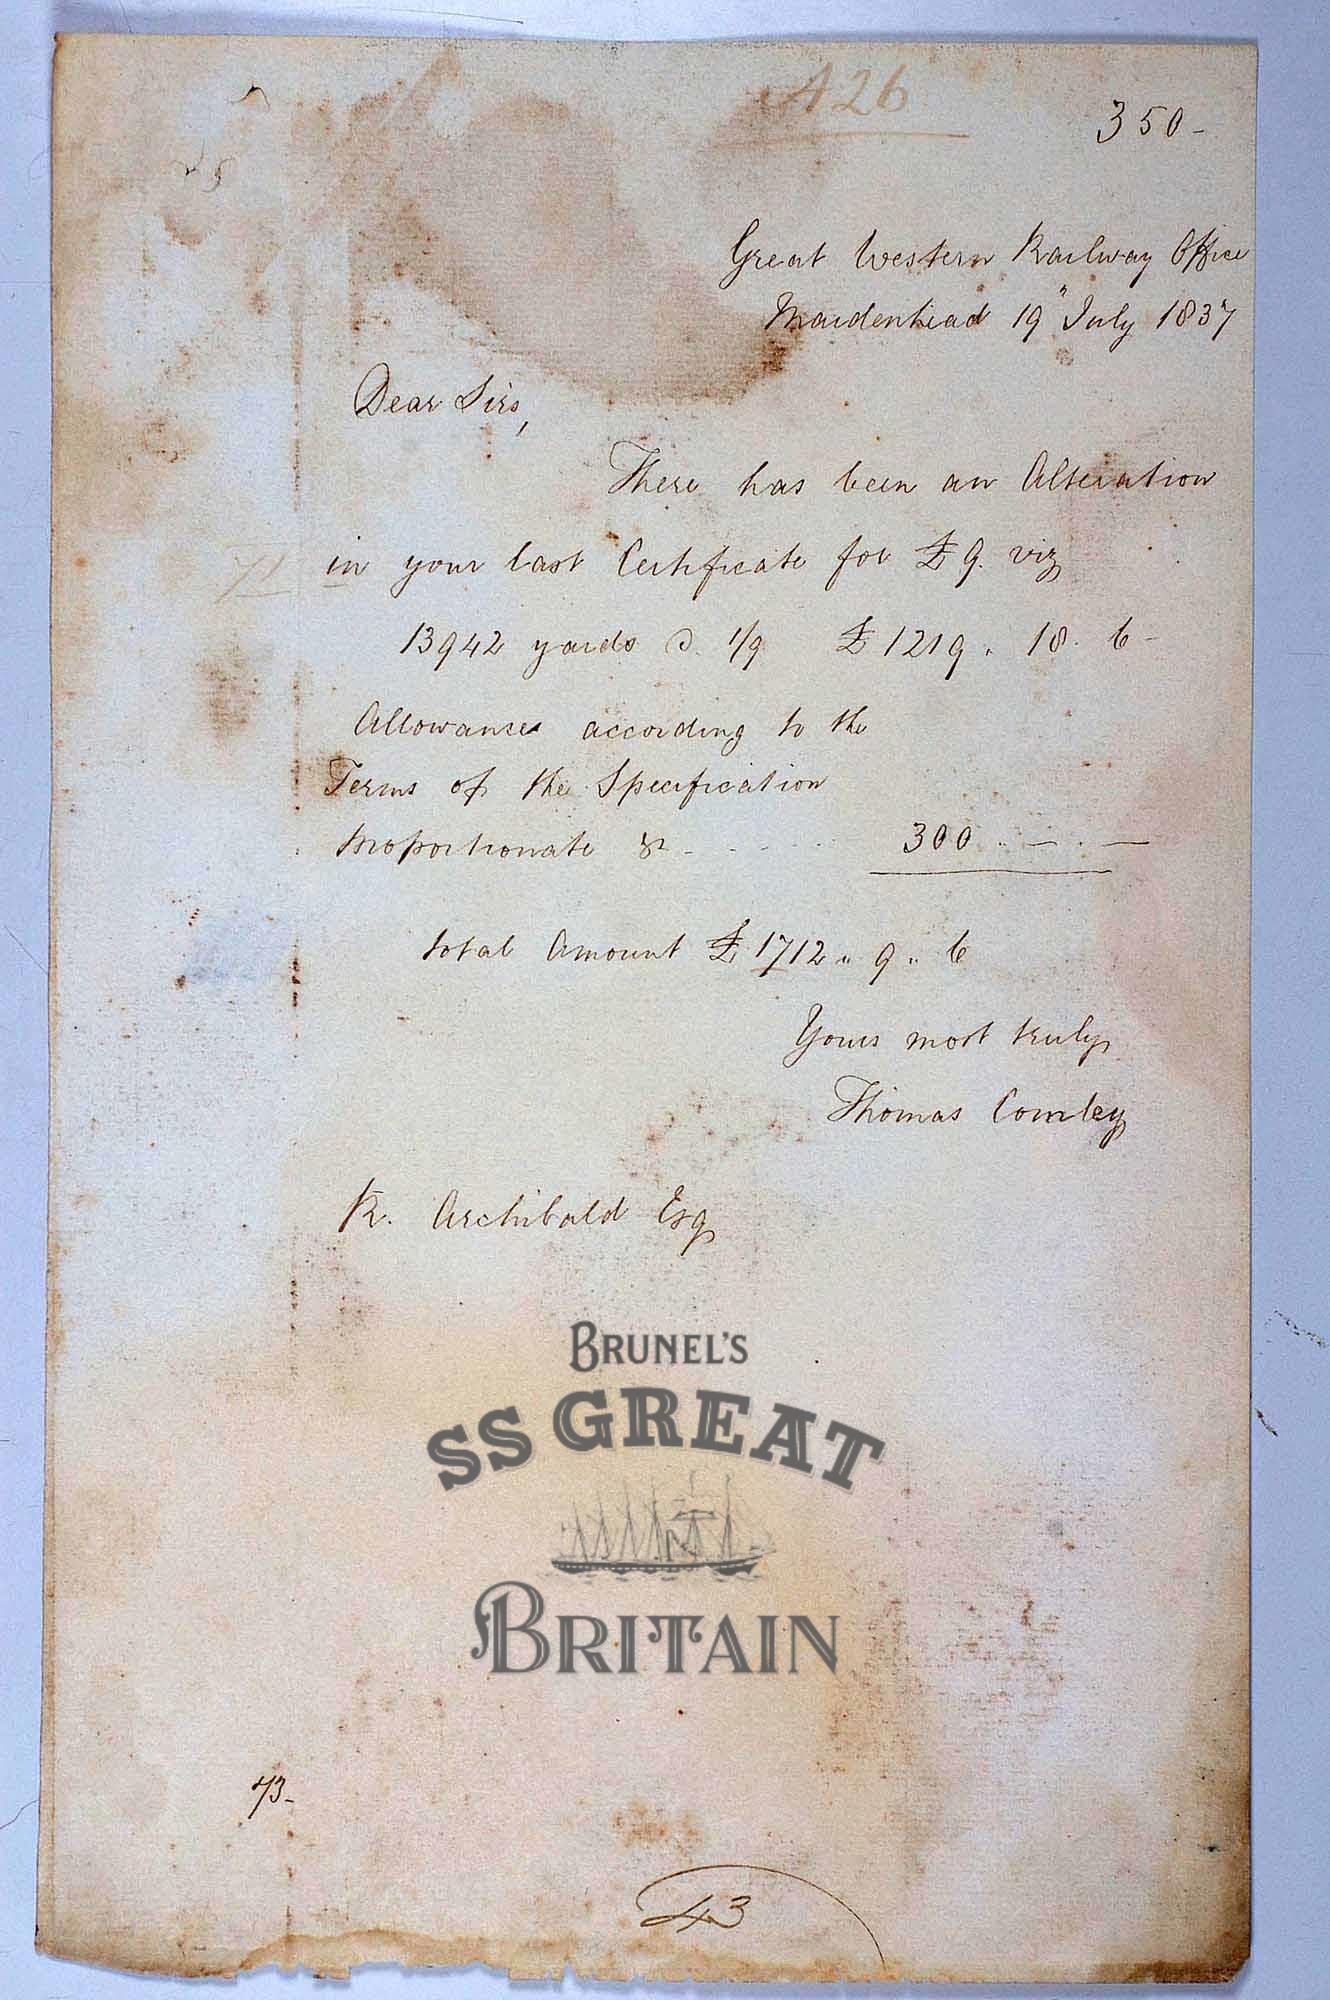 426
350-
Great Western Railway Office
Maidenhead 19" July 1837
Dear Sirs,
There has been an Alteration
in your last Certificate for £9. viz
13942 yards @. 1/9 £1219. 18. 6-
Allowances according to the
Terms of the Specification
proportionate &c - - - - - 300. - . -
total Amount £1712 " 9 " 6
Yours most truly
Thomas Comley
R. Archibald Esq
BRUNEL'S
SS GREAT
BRITAIN
73-
43